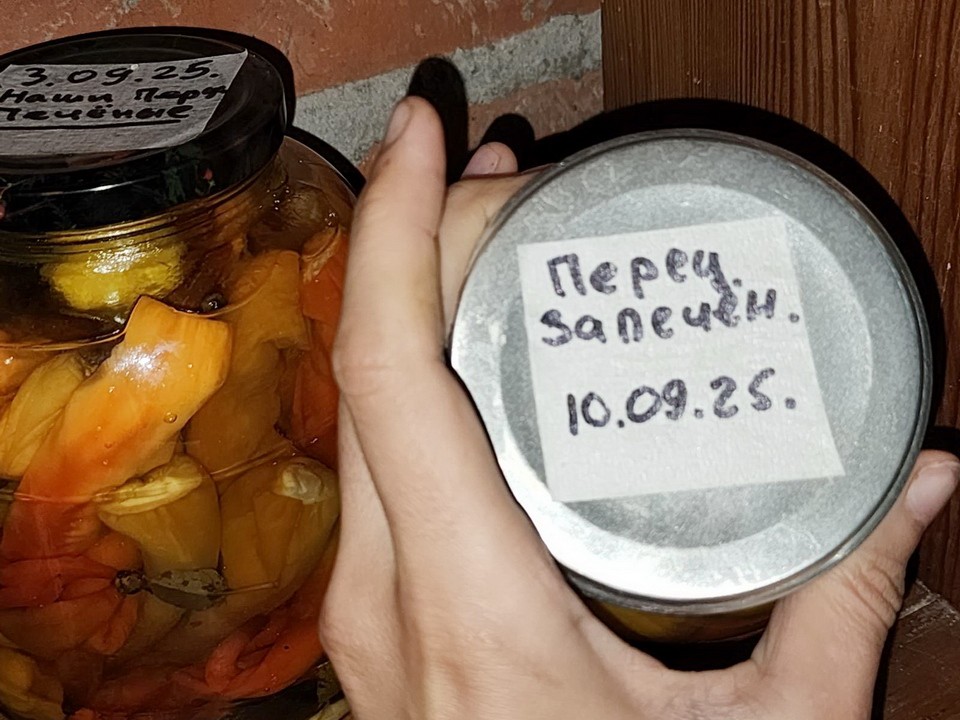 3.09.25.
Наши
Печёные
Перец.
запечён.
10.09.25.